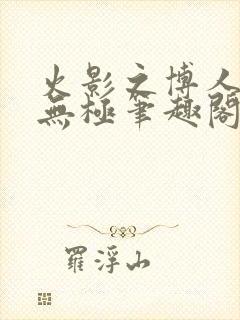 火影之博人
無極筆趣閣
羅浮山